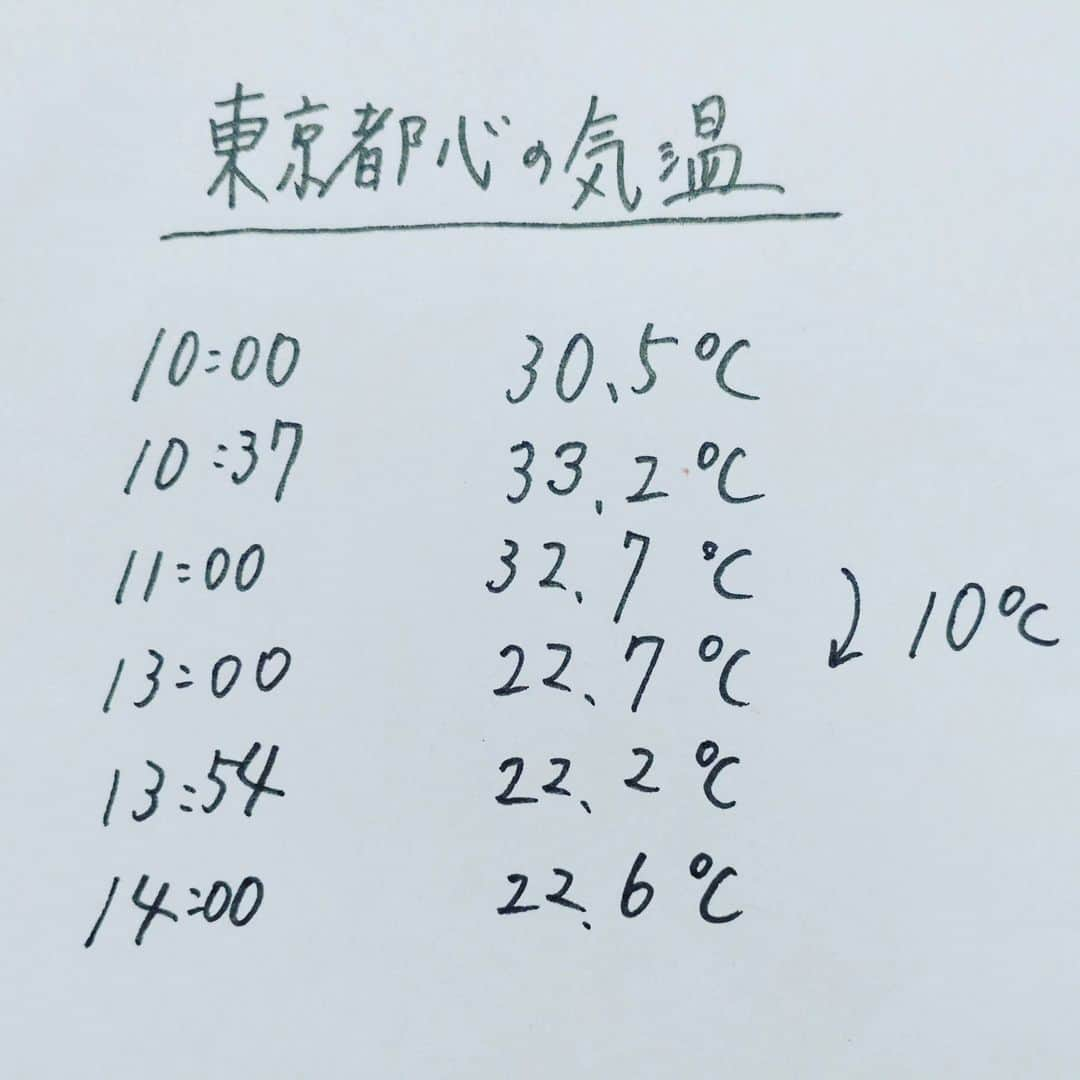 東京都心の気温
10:00 30.5℃
10:37 33.2℃
11:00 32.7℃
13:00 22.7℃
10℃
13:54 22.2℃
14:00 22.6℃